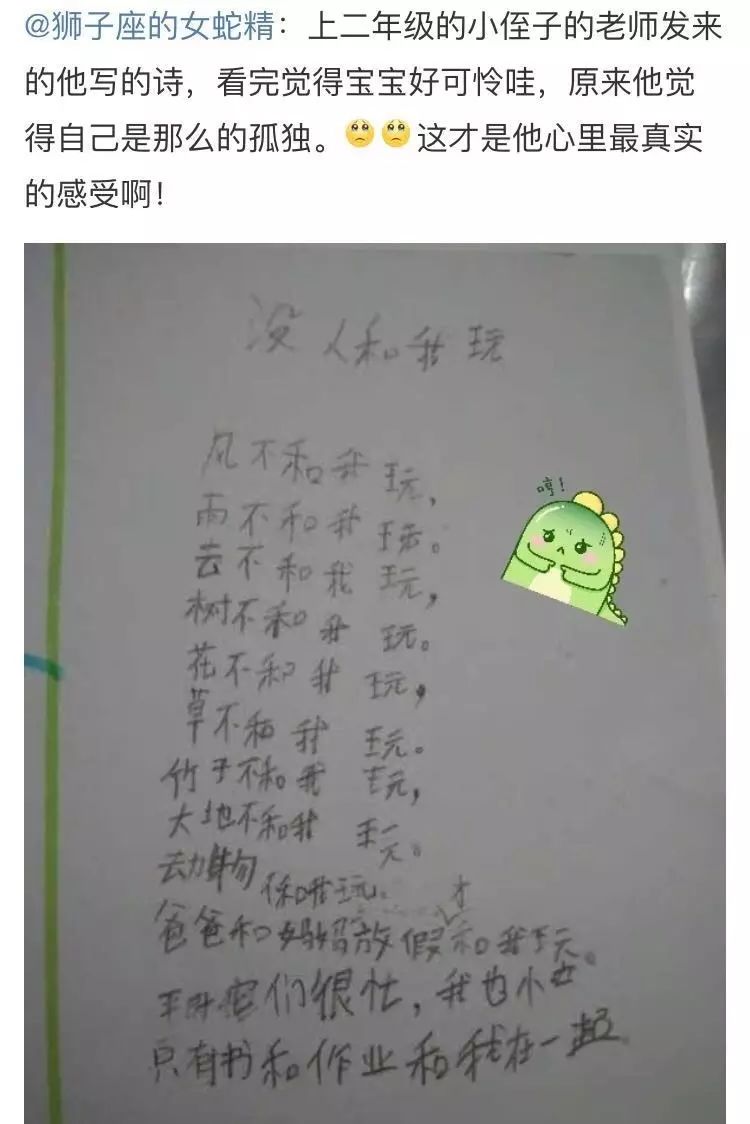 @狮子座的女蛇精：上二年级的小侄子的老师发来
的他写的诗，看完觉得宝宝好可怜哇，原来他觉
得自己是那么的孤独。🥺🥺这才是他心里最真实
的感受啊！
没人和我玩
风不和我玩，
哼！
雨不和我玩。
云不和我玩，
树不和我玩。
花不和我玩，
草不和我玩。
竹子不和我玩，
大地不和我玩。
动物不和我玩。
爸爸和妈妈放假才和我玩。
们很忙，我也
只有书和作业和我在一起